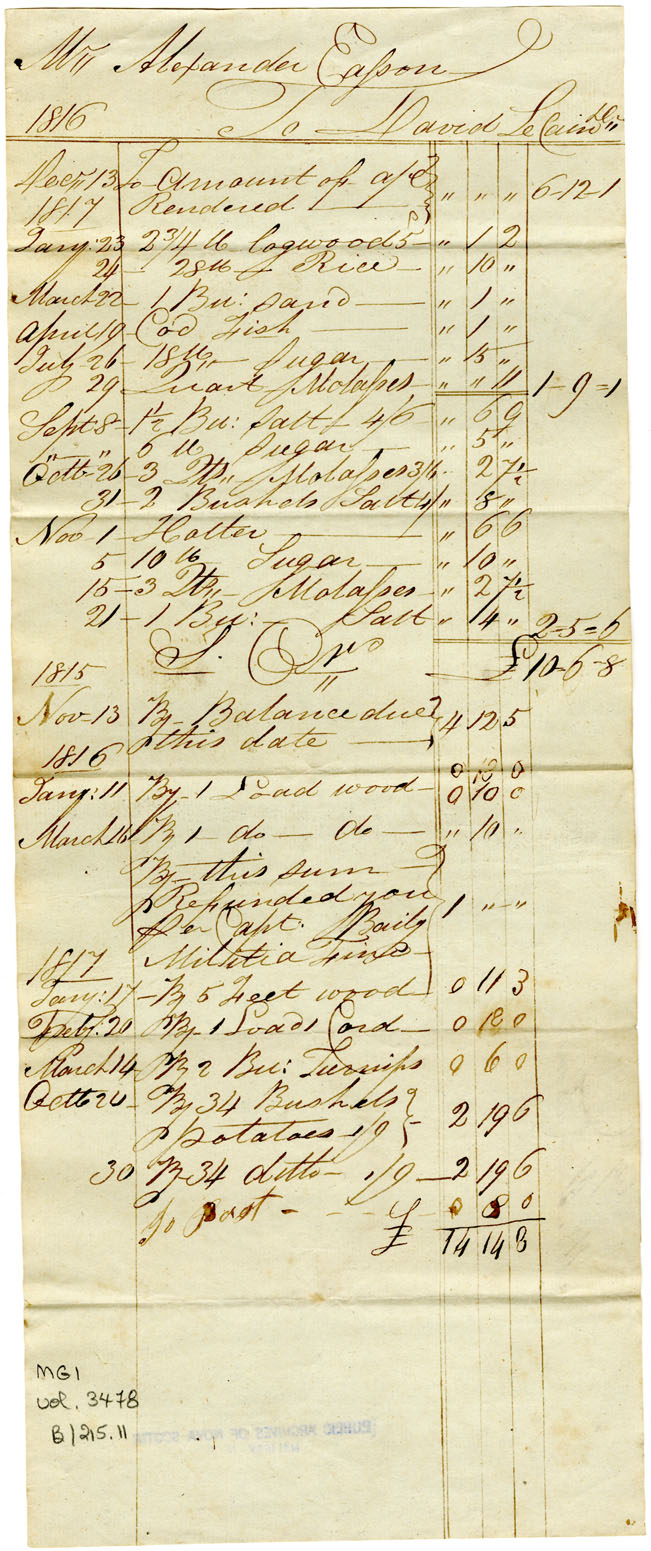 Mr,, Alexander Easson
1816 To David LeCain Dr,,
Decr,, 13 To Amount of a/c } ,, ,, ,, 6-12-1
1817 Rendered
Jany: 23 2 3/4 lb logwood 5 - ,, 1 2
24 - 28 lb Rice - ,, 10 ,,
March 22 - 1 Bu: sand - ,, 1 ,,
April 19 - Cod Fish - ,, 1 ,,
July 26 - 18 lb,, Sugar ,, 15 ,,
29 Quart Molasses ,, ,, 11 1-9=1
Sept 8 - 1 1/2 Bu: Salt 4/6 ,, 6 9
,, ,, 6 lb Sugar - ,, 5 ,,
Octb - 26 - 3 Qts,, Molasses 3/6 ,, 2 7 1/2
31 - 2 Bushels Salt 4/ ,, 8 ,,
Nov 1 - Holter ,, 6 6
5 10 lb Sugar - ,, 10 ,,
15 - 3 Qts,, - Molasses - ,, 2 7 1/2
21 - 1 Bu: - Salt - ,, 14 ,, 2-5=6
S. Cr £10-6-8
1815
Nov - 13 By Balance due } 4 12 5
this date
1816 0 10 0
Jany: 11 By 1 Load wood - 0 10 0
March 16 By 1 - do - do - ,, 10 ,,
By - this sum }
Refunded you 1 ,, - ,,
per Capt. Baily
Militia Fine
1817
Jany: 17 - By 5 Feet wood 0 11 3
Feby: 20 By 1 Load 1 Cord - 0 18 0
March 14 - By 2 Bu: Turnips 0 6 0
Octb 20 - By 34 Bushels }
potatoes 1/9 - 2 19 6
30 By 34 ditto - 1/9 - 2 19 6
To - - - 0 8 0
£ 14 14 8
MG1
vol. 3478
B/215.11
PUBLIC ARCHIVES OF NOVA SCOTIA